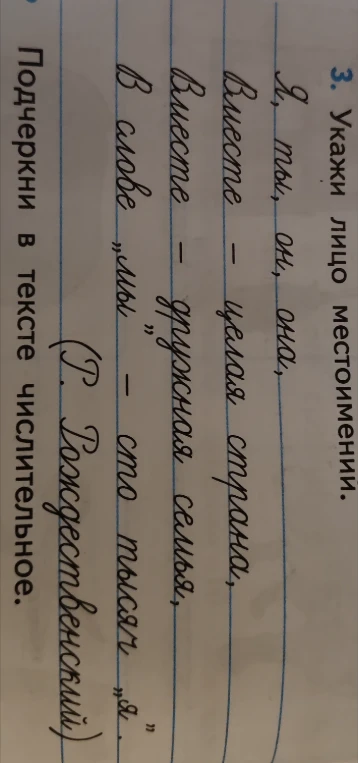 3. Укажи лицо местоимений.
Я, ты, он, она,
Вместе – целая страна,
Вместе – дружная семья,
В слове „мы” – сто тысяч „я”.
(Р. Рождественский)
Подчеркни в тексте числительное.